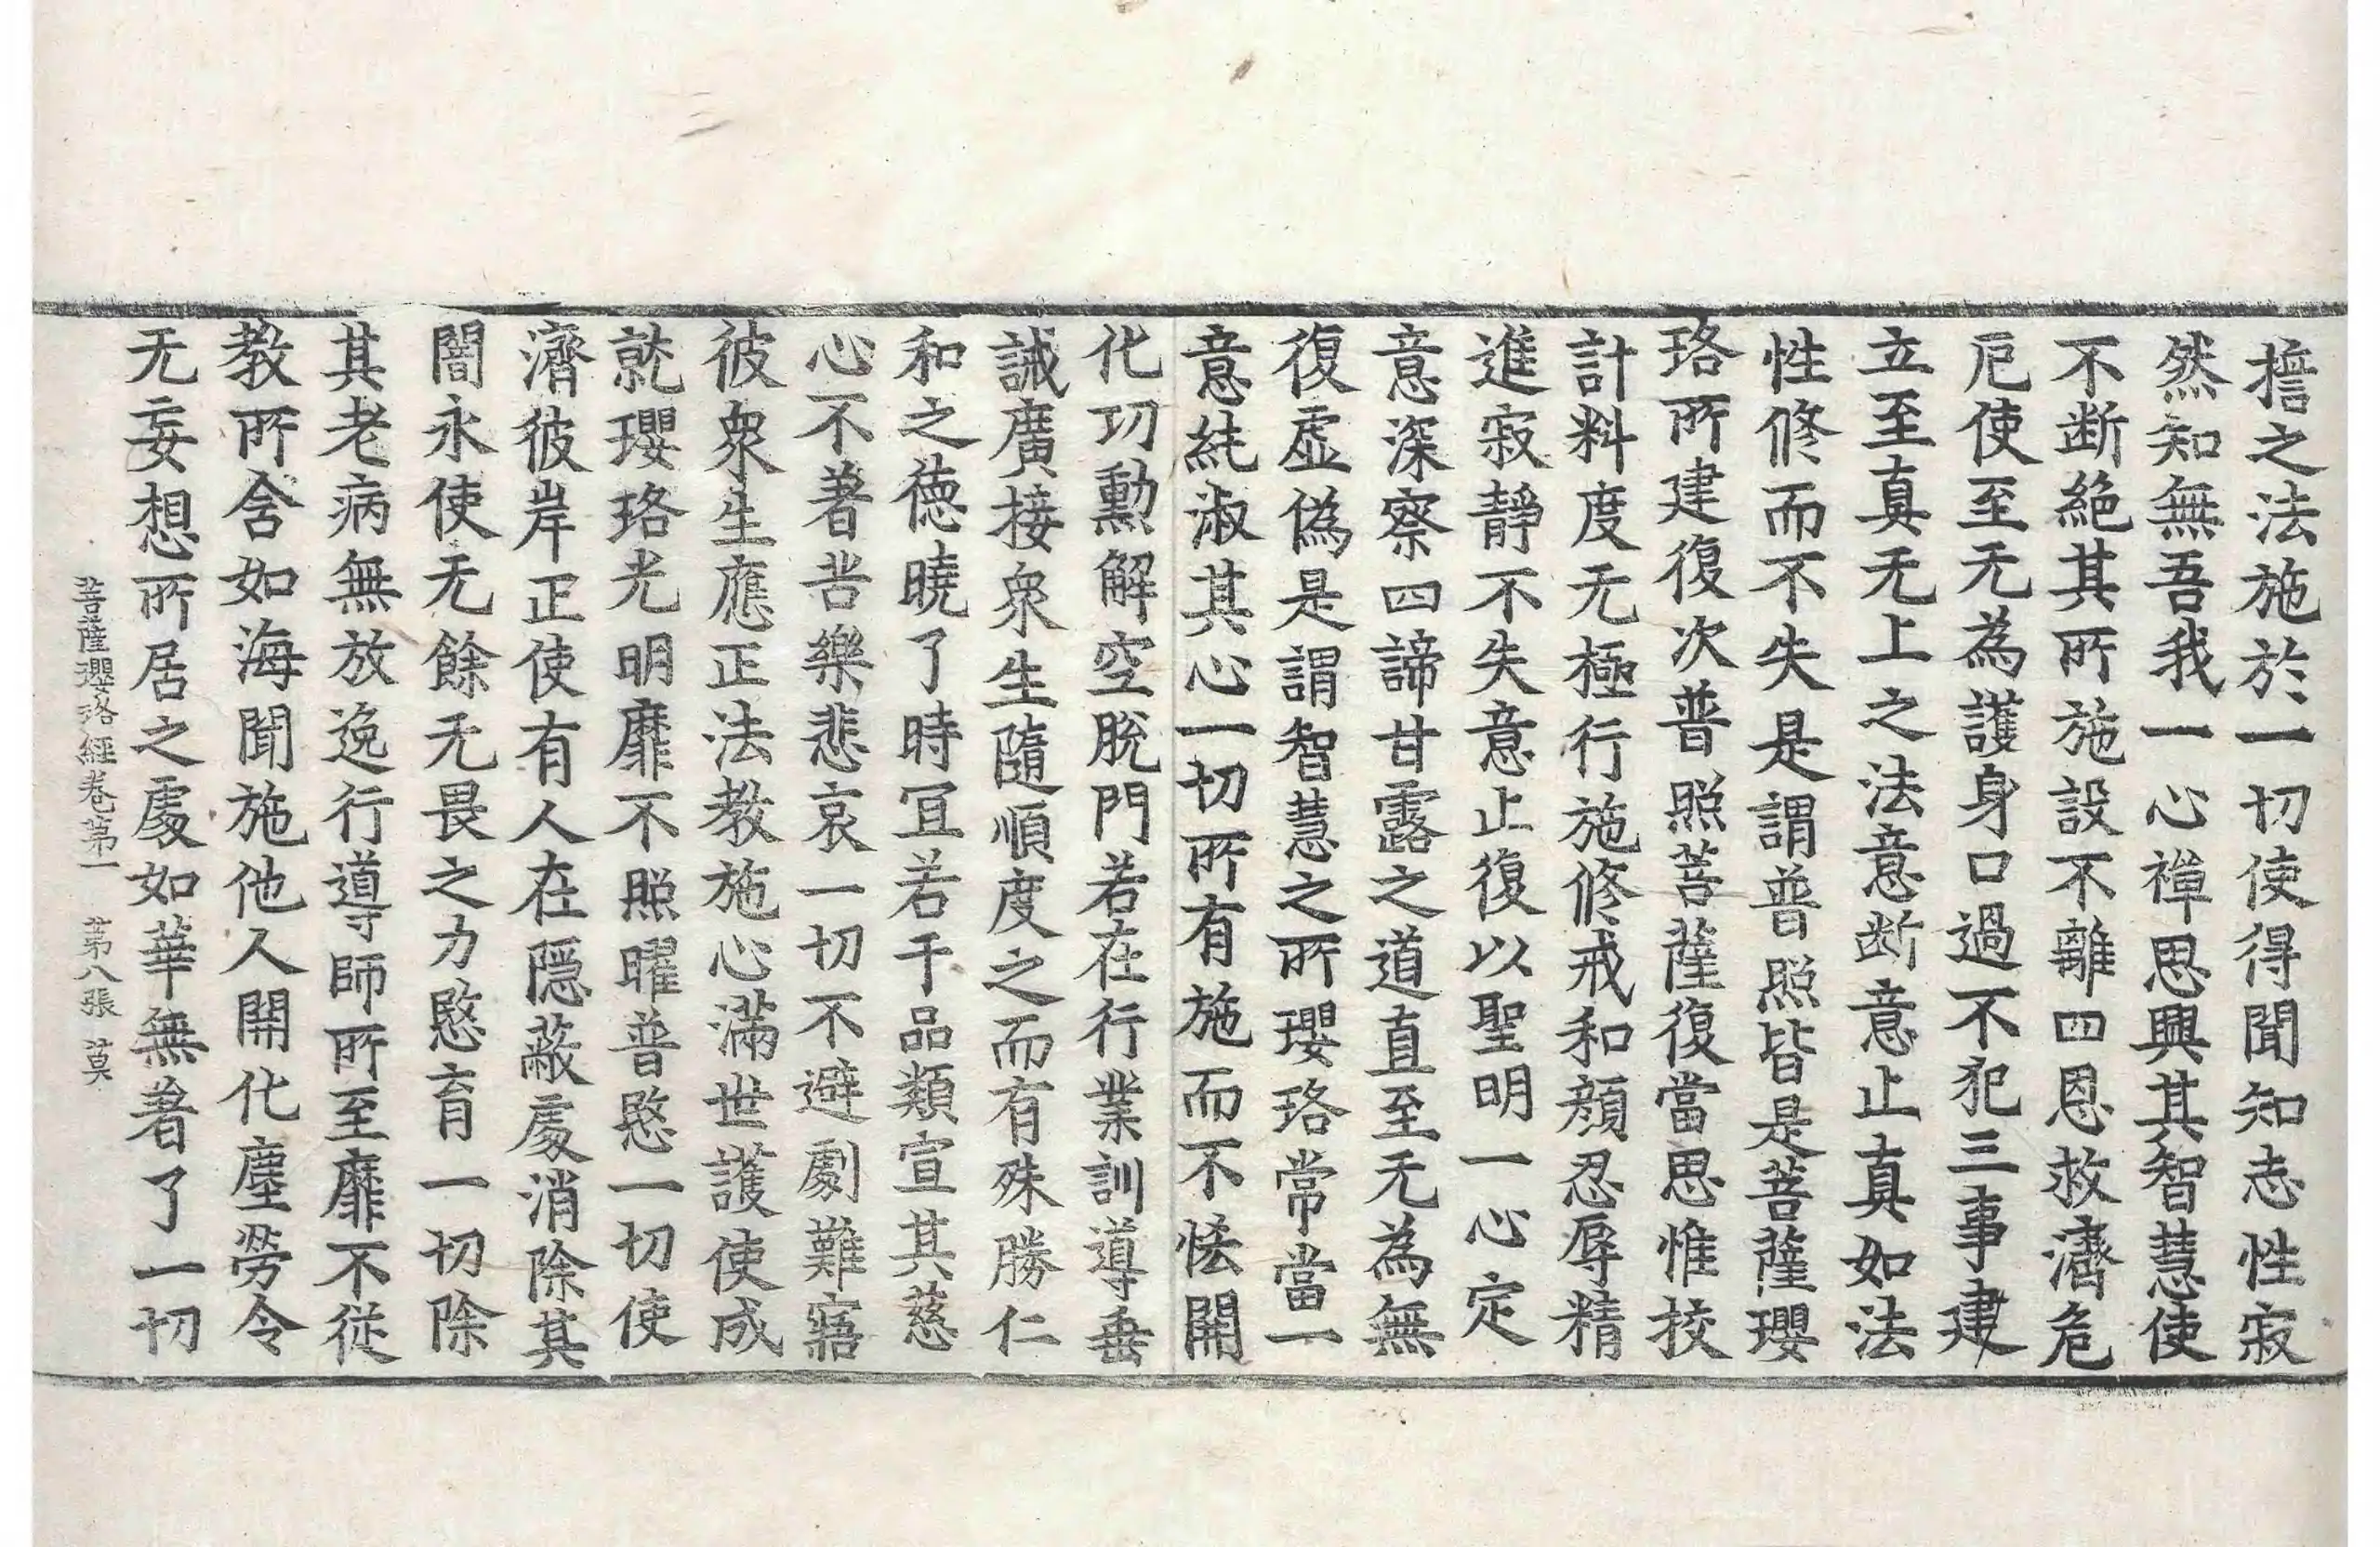 擔之法施於一切使得聞知志性寂
然知無吾我一心禅思興其智慧使
不断絶其所施設不離四恩救濟危
厄使至无為護身口過不犯三事建
立至真无上之法意断意止真如法
性修而不失是謂普照皆是菩薩瓔
珞所建復次普照菩薩復當思惟挍
計料度无極行施修戒和顔忍辱精
進寂靜不失意止復以聖明一心定
意深察四諦甘露之道直至无為無
復虛偽是謂智慧之所瓔珞常當一
意純淑其心一切所有施而不悋開
化功勳解空脫門若在行業訓導垂
誡廣接衆生隨順度之而有殊勝仁
和之徳曉了時冝若干品類宣其慈
心不著苦樂悲哀一切不避劇難寤
彼衆生應正法教施心滿世護使成
就瓔珞光明靡不照曜普愍一切使
濟彼岸正使有人在隱蔽處消除其
闇永使无餘无畏之力愍育一切除
其老病無放逸行導師所至靡不従
教所含如海聞施他人開化塵勞令
无妄想所居之處如華無著了一切
菩薩瓔珞經卷第一　第八張　莫